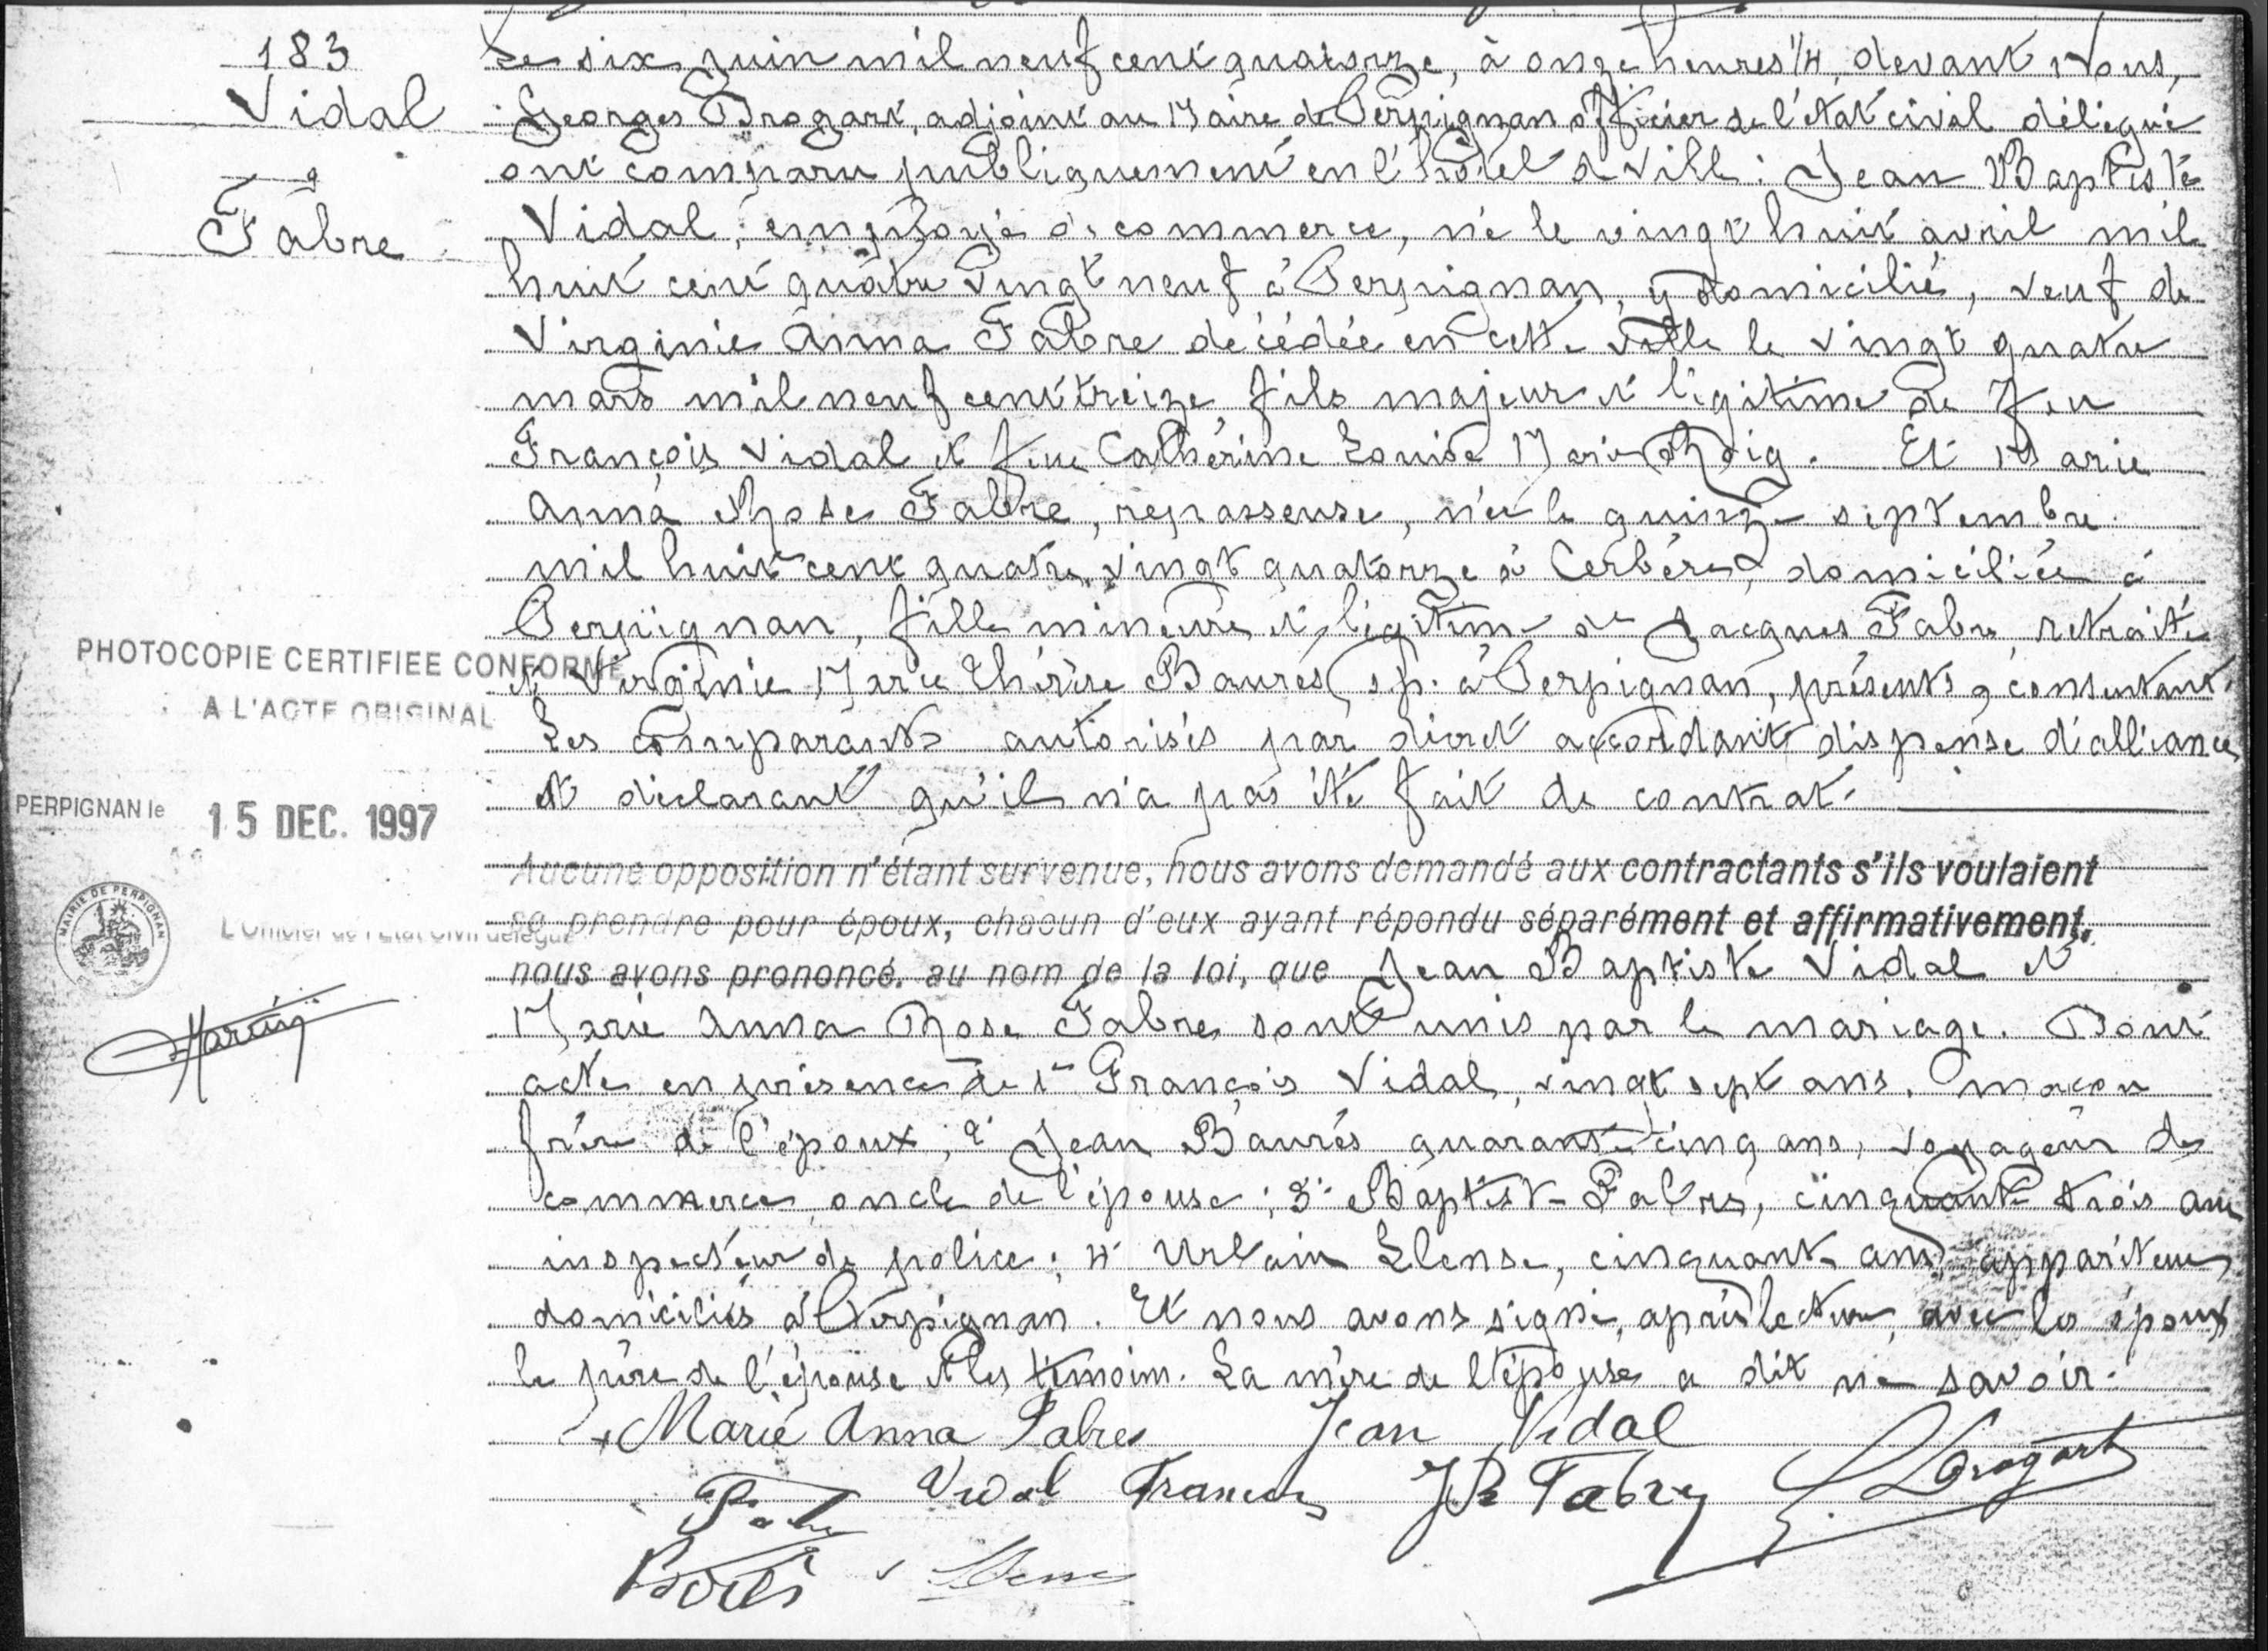 183
Vidal
&
Fabre
Le six juin mil neuf cent quatorze, à onze heures 1/4, devant Nous,
Georges Drogart, adjoint au Maire de Perpignan officier de l'état civil délégué
ont comparu publiquement en l'hôtel de ville : Jean Baptiste
Vidal, employé de commerce, né le vingt huit avril mil
huit cent quatre vingt neuf à Perpignan, y domicilié, veuf de
Virginie Anna Fabre décédée en cette ville le vingt quatre
mars mil neuf cent treize, fils majeur et légitime de feu
François Vidal et feue Catherine Louise Marie Roig. Et Marie
Anna Rose Fabre, repasseuse, née le quinze septembre
mil huit cent quatre vingt quatorze à Cerbère, domiciliée à
Perpignan, fille mineure et légitime de Jacques Fabre, retraité
et Virginie Marie Thérèse Baurès, s.p. à Perpignan, présents & consentant.
Les comparants autorisés par décret accordant dispense d'alliance
et déclarant qu'il n'a pas été fait de contrat.
Aucune opposition n'étant survenue, nous avons demandé aux contractants s'ils voulaient
se prendre pour époux, chacun d'eux ayant répondu séparément et affirmativement,
nous avons prononcé, au nom de la loi, que Jean Baptiste Vidal et
Marie Anna Rose Fabre sont unis par le mariage. Dont
acte en présence de 1° François Vidal, vingt sept ans, maçon
frère de l'époux ; 2° Jean Baurès quarante cinq ans, voyageur de
commerce, oncle de l'épouse ; 3° Baptiste Fabre, cinquante trois ans
inspecteur de police ; 4° Urbain Llense, cinquante ans, appariteur,
domiciliés à Perpignan. Et nous avons signé, après lecture, avec les époux
le père de l'épouse et les témoins. La mère de l'épouse a dit ne savoir.
Marie Anna Fabre Jean Vidal
Fabre Vidal François JB Fabre G. Drogart
Llense
PHOTOCOPIE CERTIFIEE CONFORME
A L'ACTE ORIGINAL
PERPIGNAN le 15 DEC. 1997
MAIRIE DE PERPIGNAN
L'Officier de l'Etat Civil délégué